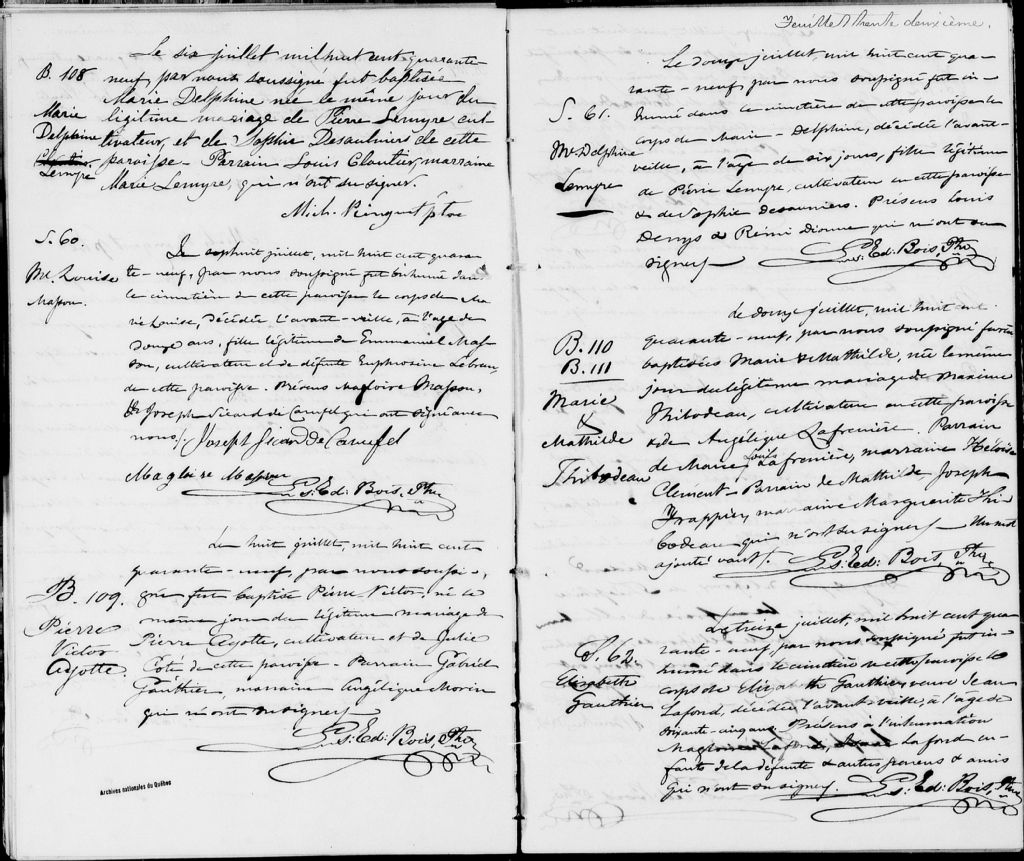 B. 108
Marie
Delphine
Lemyre
Le six juillet mil huit cent quarante-
neuf, par nous soussigné fut baptisée
Marie Delphine née le même jour du
légitime mariage de Pierre Lemyre cul-
tivateur, et de Sophie Desaulniers de cette
paroisse - Parrain Louis Cloutier, marraine
Marie Lemyre, qui n'ont su signer.
Mich. Ptre
S. 60.
Me. Louise
Masson.
Le sephuit juillet, mil huit cent quaran
te-neuf, par nous soussigné fut inhumé dans
le cimetière de cette paroisse le corps de Ma
rie Louise, décédée l'avant-veille, à l'age de
douze ans, fille légitime de Emmanuel Mas
son, cultivateur et de défunte Euphrosine Lebrun
de cette paroisse. Présens Magloire Masson,
& Joseph Sicard de Carufel qui ont signé avec
nous. Joseph Sicard de Carufel
Magloire Masson
Ls: Ed: Bois, Ptre
B. 109.
Pierre
Victor
Ayotte
Le huit juillet, mil huit cent
quarante-neuf, par nous soussi-
gné fut baptisé Pierre Victor, né le
même jour du légitime mariage de
Pierre Ayotte, cultivateur et de Julie
Côté de cette paroisse - Parrain Gabriel
Gauthier, marraine Angélique Morin
qui n'ont su signer
Ls: Ed: Bois, Ptre
Archives nationales du Québec
Feuillet trente deuxième.
S. 61.
Me. Delphine
Lemyre
Le douze juillet, mil huit cent qua-
rante-neuf par nous soussigné fut in-
humé dans le cimetière de cette paroisse le
corps de Marie-Delphine, décédée l'avant-
veille, à l'âge de six jours, fille légitime
de Pierre Lemyre, cultivateur en cette paroisse
& de Sophie desauniers. Présens Louis
Denys & Rémi Dionne qui n'ont su
signer
Ls: Ed: Bois, Ptre
B. 110
B. 111
Marie
&
Mathilde
Thibodeau
Le douze juillet, mil huit cent
quarante-neuf, par nous soussigné furent
baptisées Marie & Mathilde, nées le même
jour du légitime mariage de Maxime
Thibodeau, cultivateur en cette paroisse
& de Angélique Lafrenière. Parrain
de Marie, Louis Lafrenière, marraine Héloïse
Clément - Parrain de Mathilde, Joseph
Frappier, marraine Marguerite Thi-
bodeau qui n'ont su signer - Un mot
ajouté vaut.
Ls: Ed: Bois, Ptre
S. 62.
Elizabeth
Gauthier
Le treize juillet, mil huit cent qua
rante-neuf, par nous soussigné fut in-
humé dans le cimetière de cette paroisse le
corps de Elizabeth Gauthier, veuve Jean
Lafond, décédée l'avant-veille, à l'âge de
soixante-cinq ans. Présens à l'inhumation
Magloire Lafond, Lafond en-
fants de la défunte & autres parens & amis
qui n'ont su signer.
Ls: Ed: Bois, Ptre